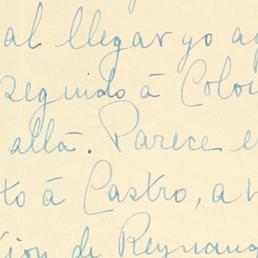 al llegar yo a
seguido á Colo
allá. Parece e
to á Castro, a
ión de Reynang